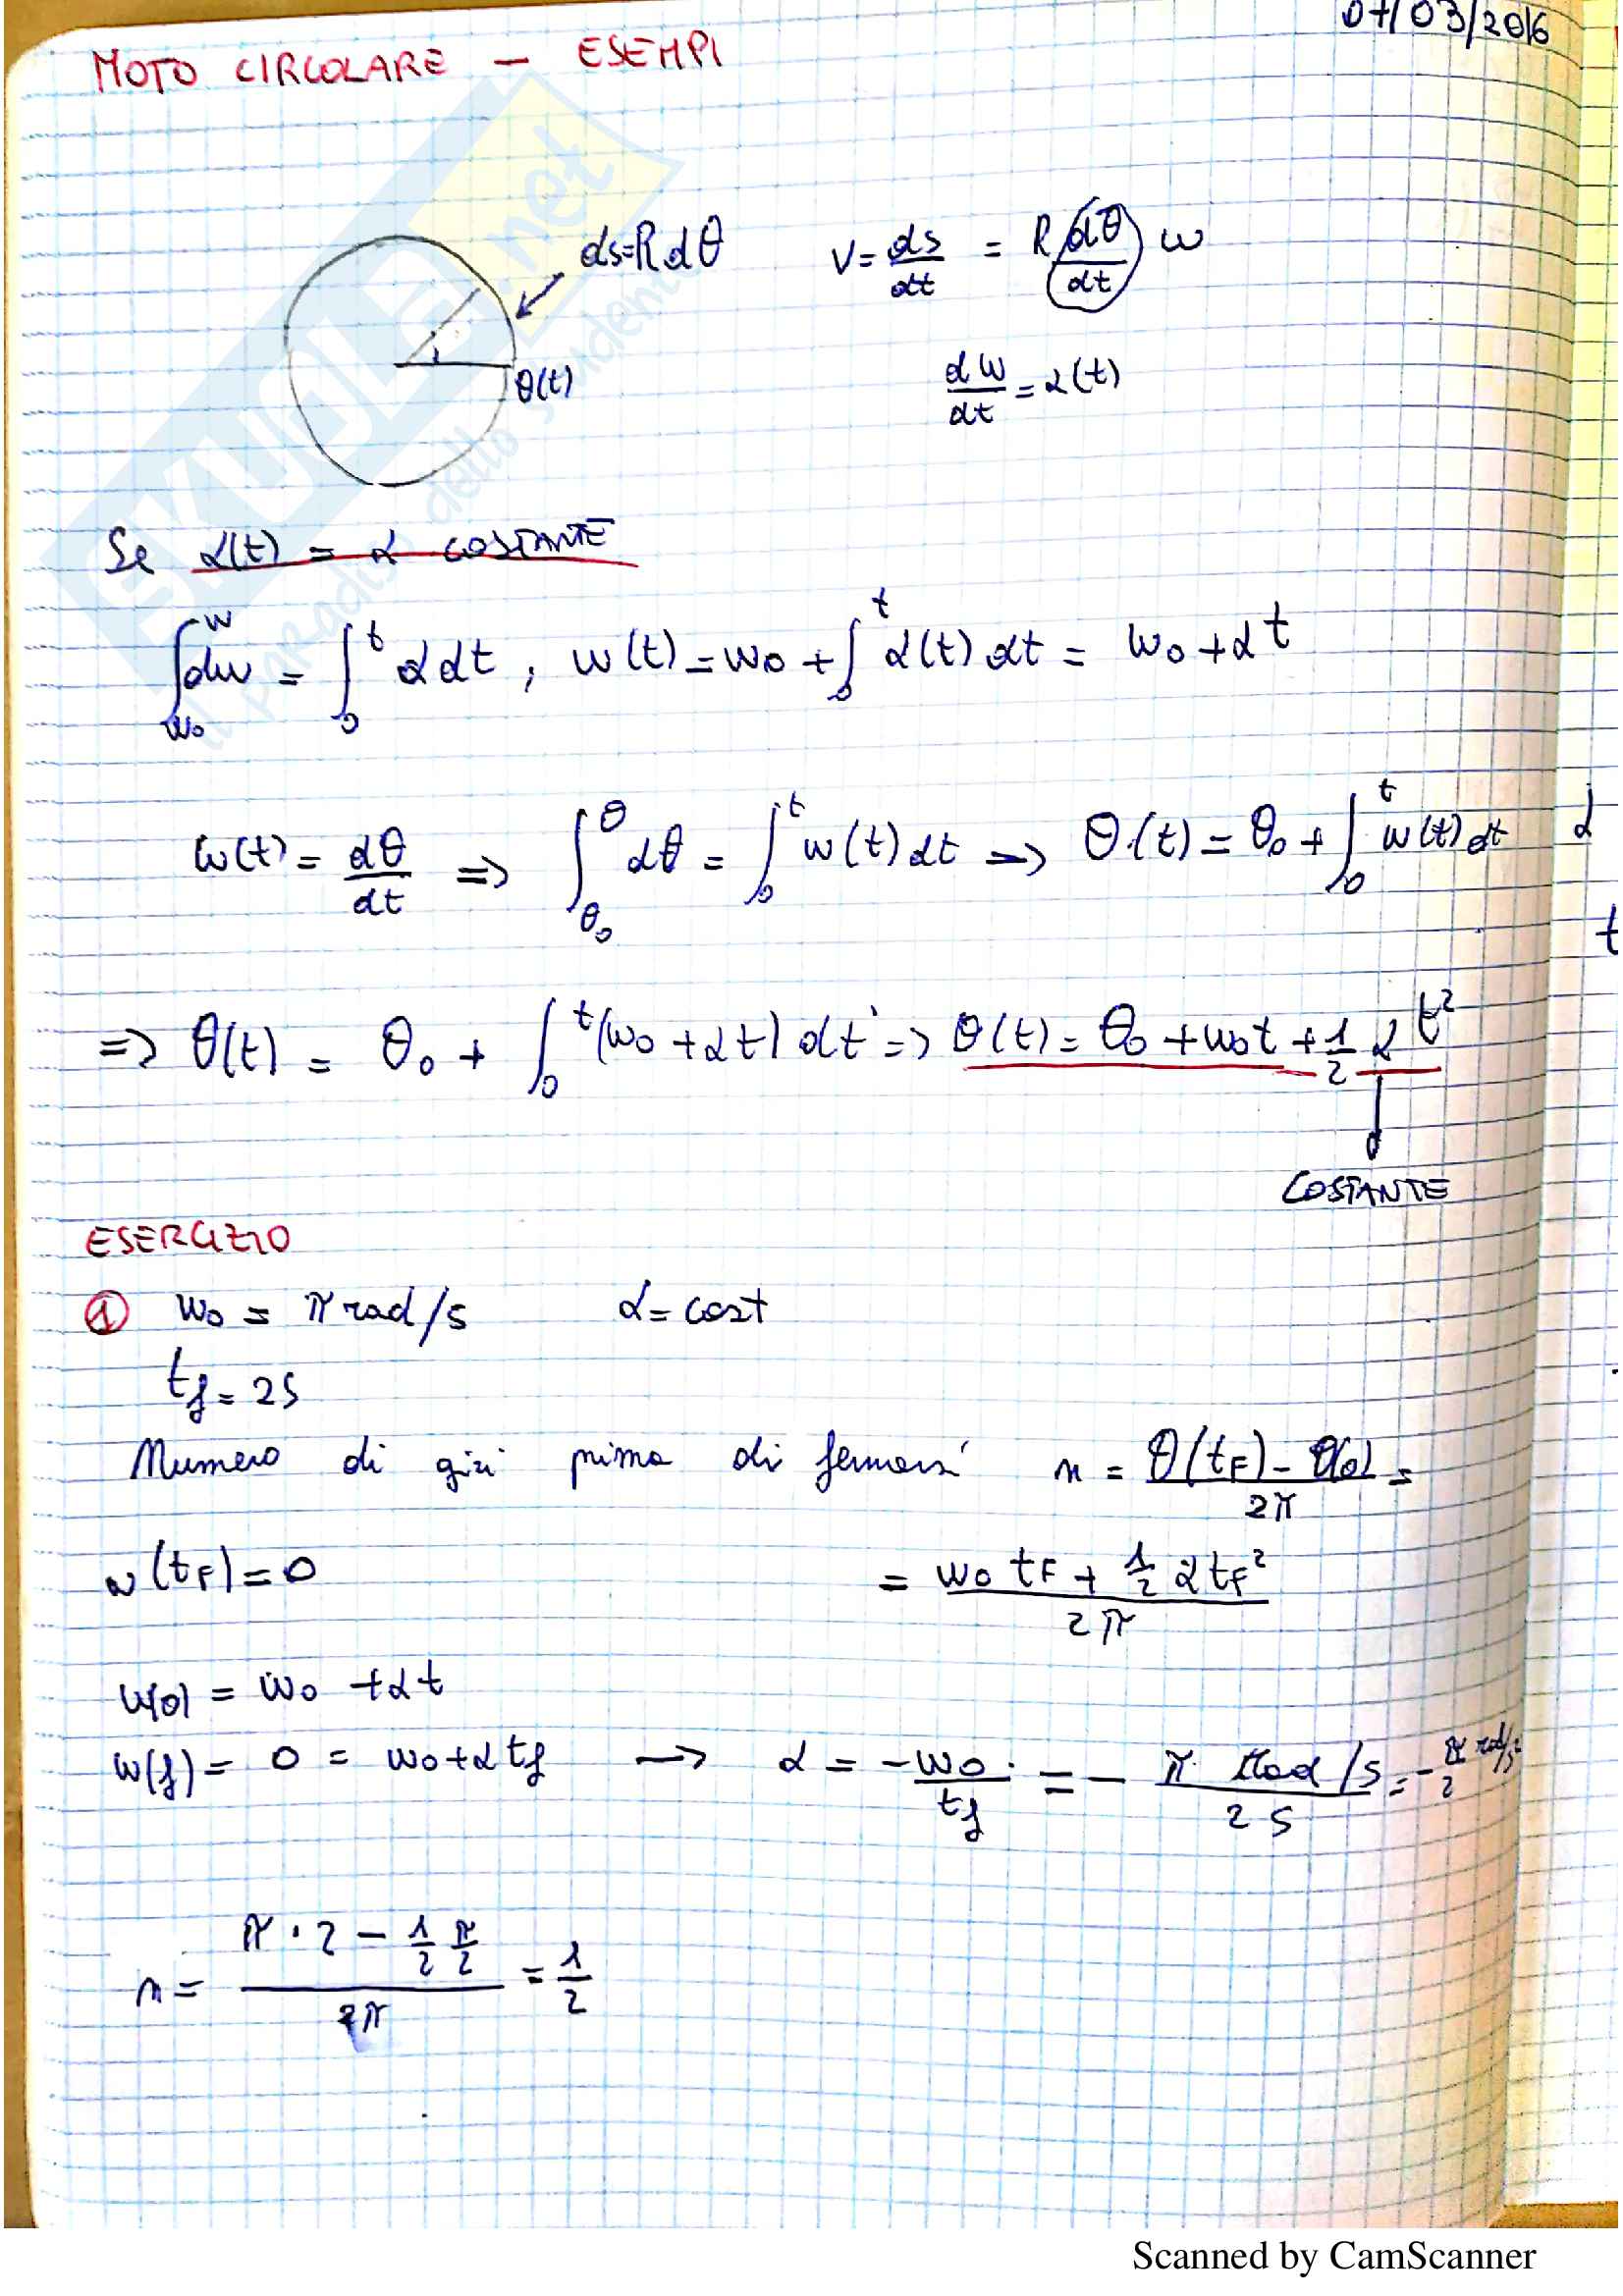 07/03/2016
MOTO CIRCOLARE – ESEMPI
ds=Rdθ
V = ds/dt = R dθ/dt ω
θ(t)
dω/dt = α(t)
Se α(t) = α COSTANTE
∫_ω₀^ω dω = ∫_0^t α dt , ω(t) = ω₀ + ∫_0^t α(t) dt = ω₀ + αt
ω(t) = dθ/dt => ∫_θ₀^θ dθ = ∫_0^t ω(t) dt => θ(t) = θ₀ + ∫_0^t ω(t) dt
=> θ(t) = θ₀ + ∫_0^t (ω₀ + αt) dt => θ(t) = θ₀ + ω₀t + 1/2 α t²
COSTANTE
ESERCIZIO
① ω₀ = π rad/s α = cost
t_f = 2s
Numero di giri prima di fermarsi n = (θ(t_F) – θ(0))/2π =
ω(t_F) = 0 = (ω₀ t_F + 1/2 α t_F²)/2π
ω(0) = ω₀ + αt
ω(f) = 0 = ω₀ + α t_f → α = -ω₀/t_f = - (π rad/s)/(2 s) = - π/2 rad/s²
n = (π · 2 – 1/2 π/2)/2π = 1/2
SKUOLA.net
il paradiso dello studente
Scanned by CamScanner